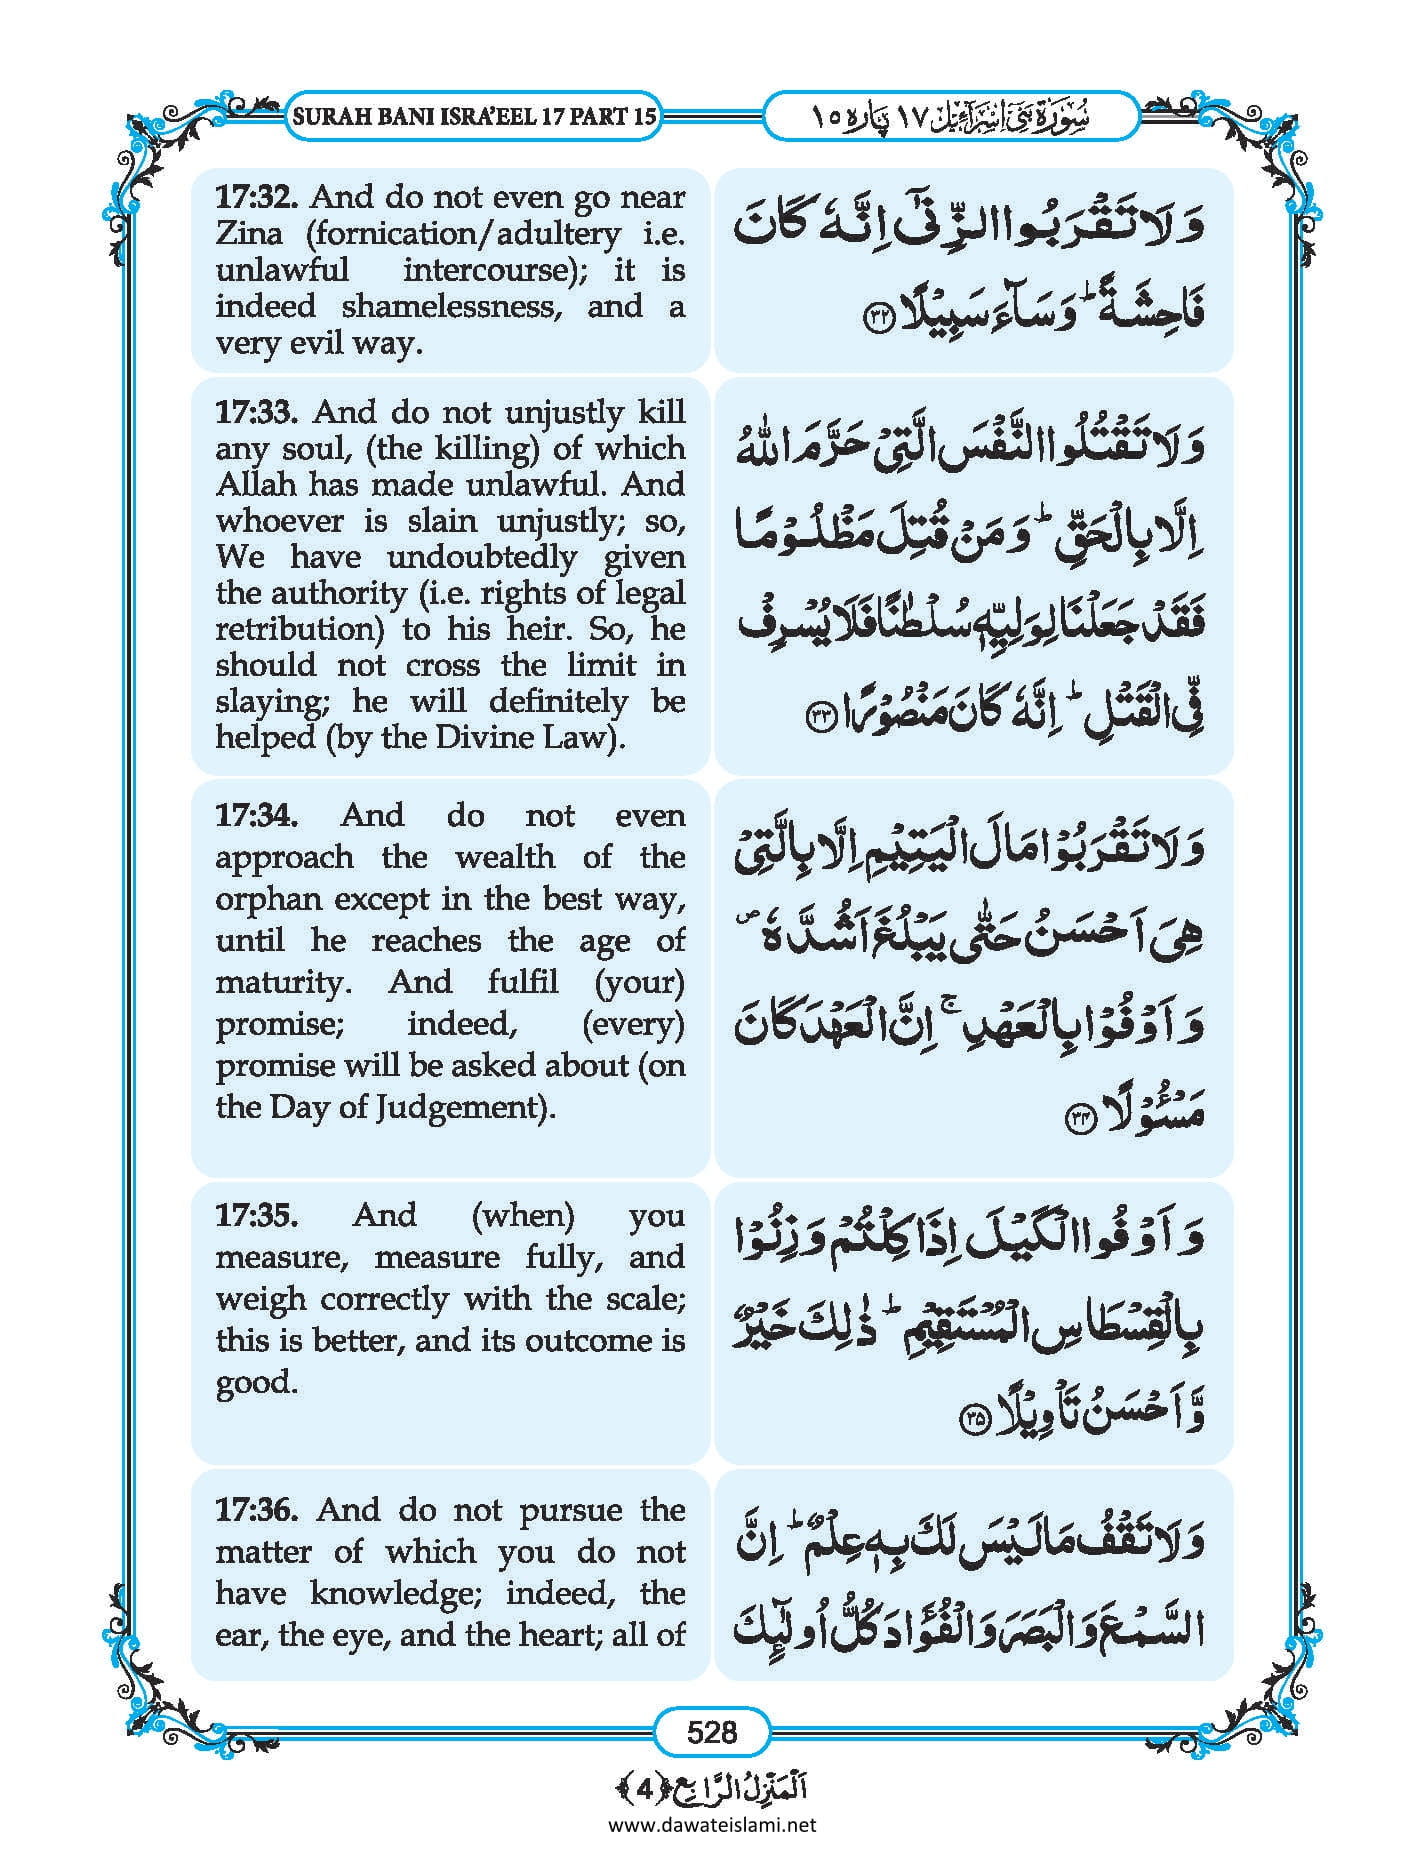 SURAH BANI ISRA’EEL 17 PART 15
سُوْرَةُ بَنِیْٓ اِسْرَآءِیْل ١٧ پارہ ١٥
17:32. And do not even go near
Zina (fornication/adultery i.e.
unlawful intercourse); it is
indeed shamelessness, and a
very evil way.
وَ لَا تَقْرَبُوا الزِّنٰۤى اِنَّهٗ كَانَ
فَاحِشَةًؕ وَ سَآءَ سَبِیْلًا ﴿۳۲﴾
17:33. And do not unjustly kill
any soul, (the killing) of which
Allah has made unlawful. And
whoever is slain unjustly; so,
We have undoubtedly given
the authority (i.e. rights of legal
retribution) to his heir. So, he
should not cross the limit in
slaying; he will definitely be
helped (by the Divine Law).
وَ لَا تَقْتُلُوا النَّفْسَ الَّتِیْ حَرَّمَ اللّٰهُ
اِلَّا بِالْحَقِّؕ وَ مَنْ قُتِلَ مَظْلُوْمًا
فَقَدْ جَعَلْنَا لِوَلِیِّهٖ سُلْطٰنًا فَلَا یُسْرِفْ
فِّی الْقَتْلِؕ اِنَّهٗ كَانَ مَنْصُوْرًا ﴿۳۳﴾
17:34. And do not even
approach the wealth of the
orphan except in the best way,
until he reaches the age of
maturity. And fulfil (your)
promise; indeed, (every)
promise will be asked about (on
the Day of Judgement).
وَ لَا تَقْرَبُوْا مَالَ الْیَتِیْمِ اِلَّا بِالَّتِیْ
هِیَ اَحْسَنُ حَتّٰى یَبْلُغَ اَشُدَّه۪ٗ
وَ اَوْفُوْا بِالْعَهْدِۚ اِنَّ الْعَهْدَ كَانَ
مَسْـُٔوْلًا ﴿۳۴﴾
17:35. And (when) you
measure, measure fully, and
weigh correctly with the scale;
this is better, and its outcome is
good.
وَ اَوْفُوا الْكَیْلَ اِذَا كِلْتُمْ وَ زِنُوْا
بِالْقِسْطَاسِ الْمُسْتَقِیْمِؕ ذٰلِكَ خَیْرٌ
وَّ اَحْسَنُ تَاْوِیْلًا ﴿۳۵﴾
17:36. And do not pursue the
matter of which you do not
have knowledge; indeed, the
ear, the eye, and the heart; all of
وَ لَا تَقْفُ مَا لَیْسَ لَكَ بِهٖ عِلْمٌؕ اِنَّ
السَّمْعَ وَ الْبَصَرَ وَ الْفُؤَادَ كُلُّ اُولٰٓىٕكَ
528
اَلْمَنْزِلُ الرَّابِع ﴿4﴾
www.dawateislami.net